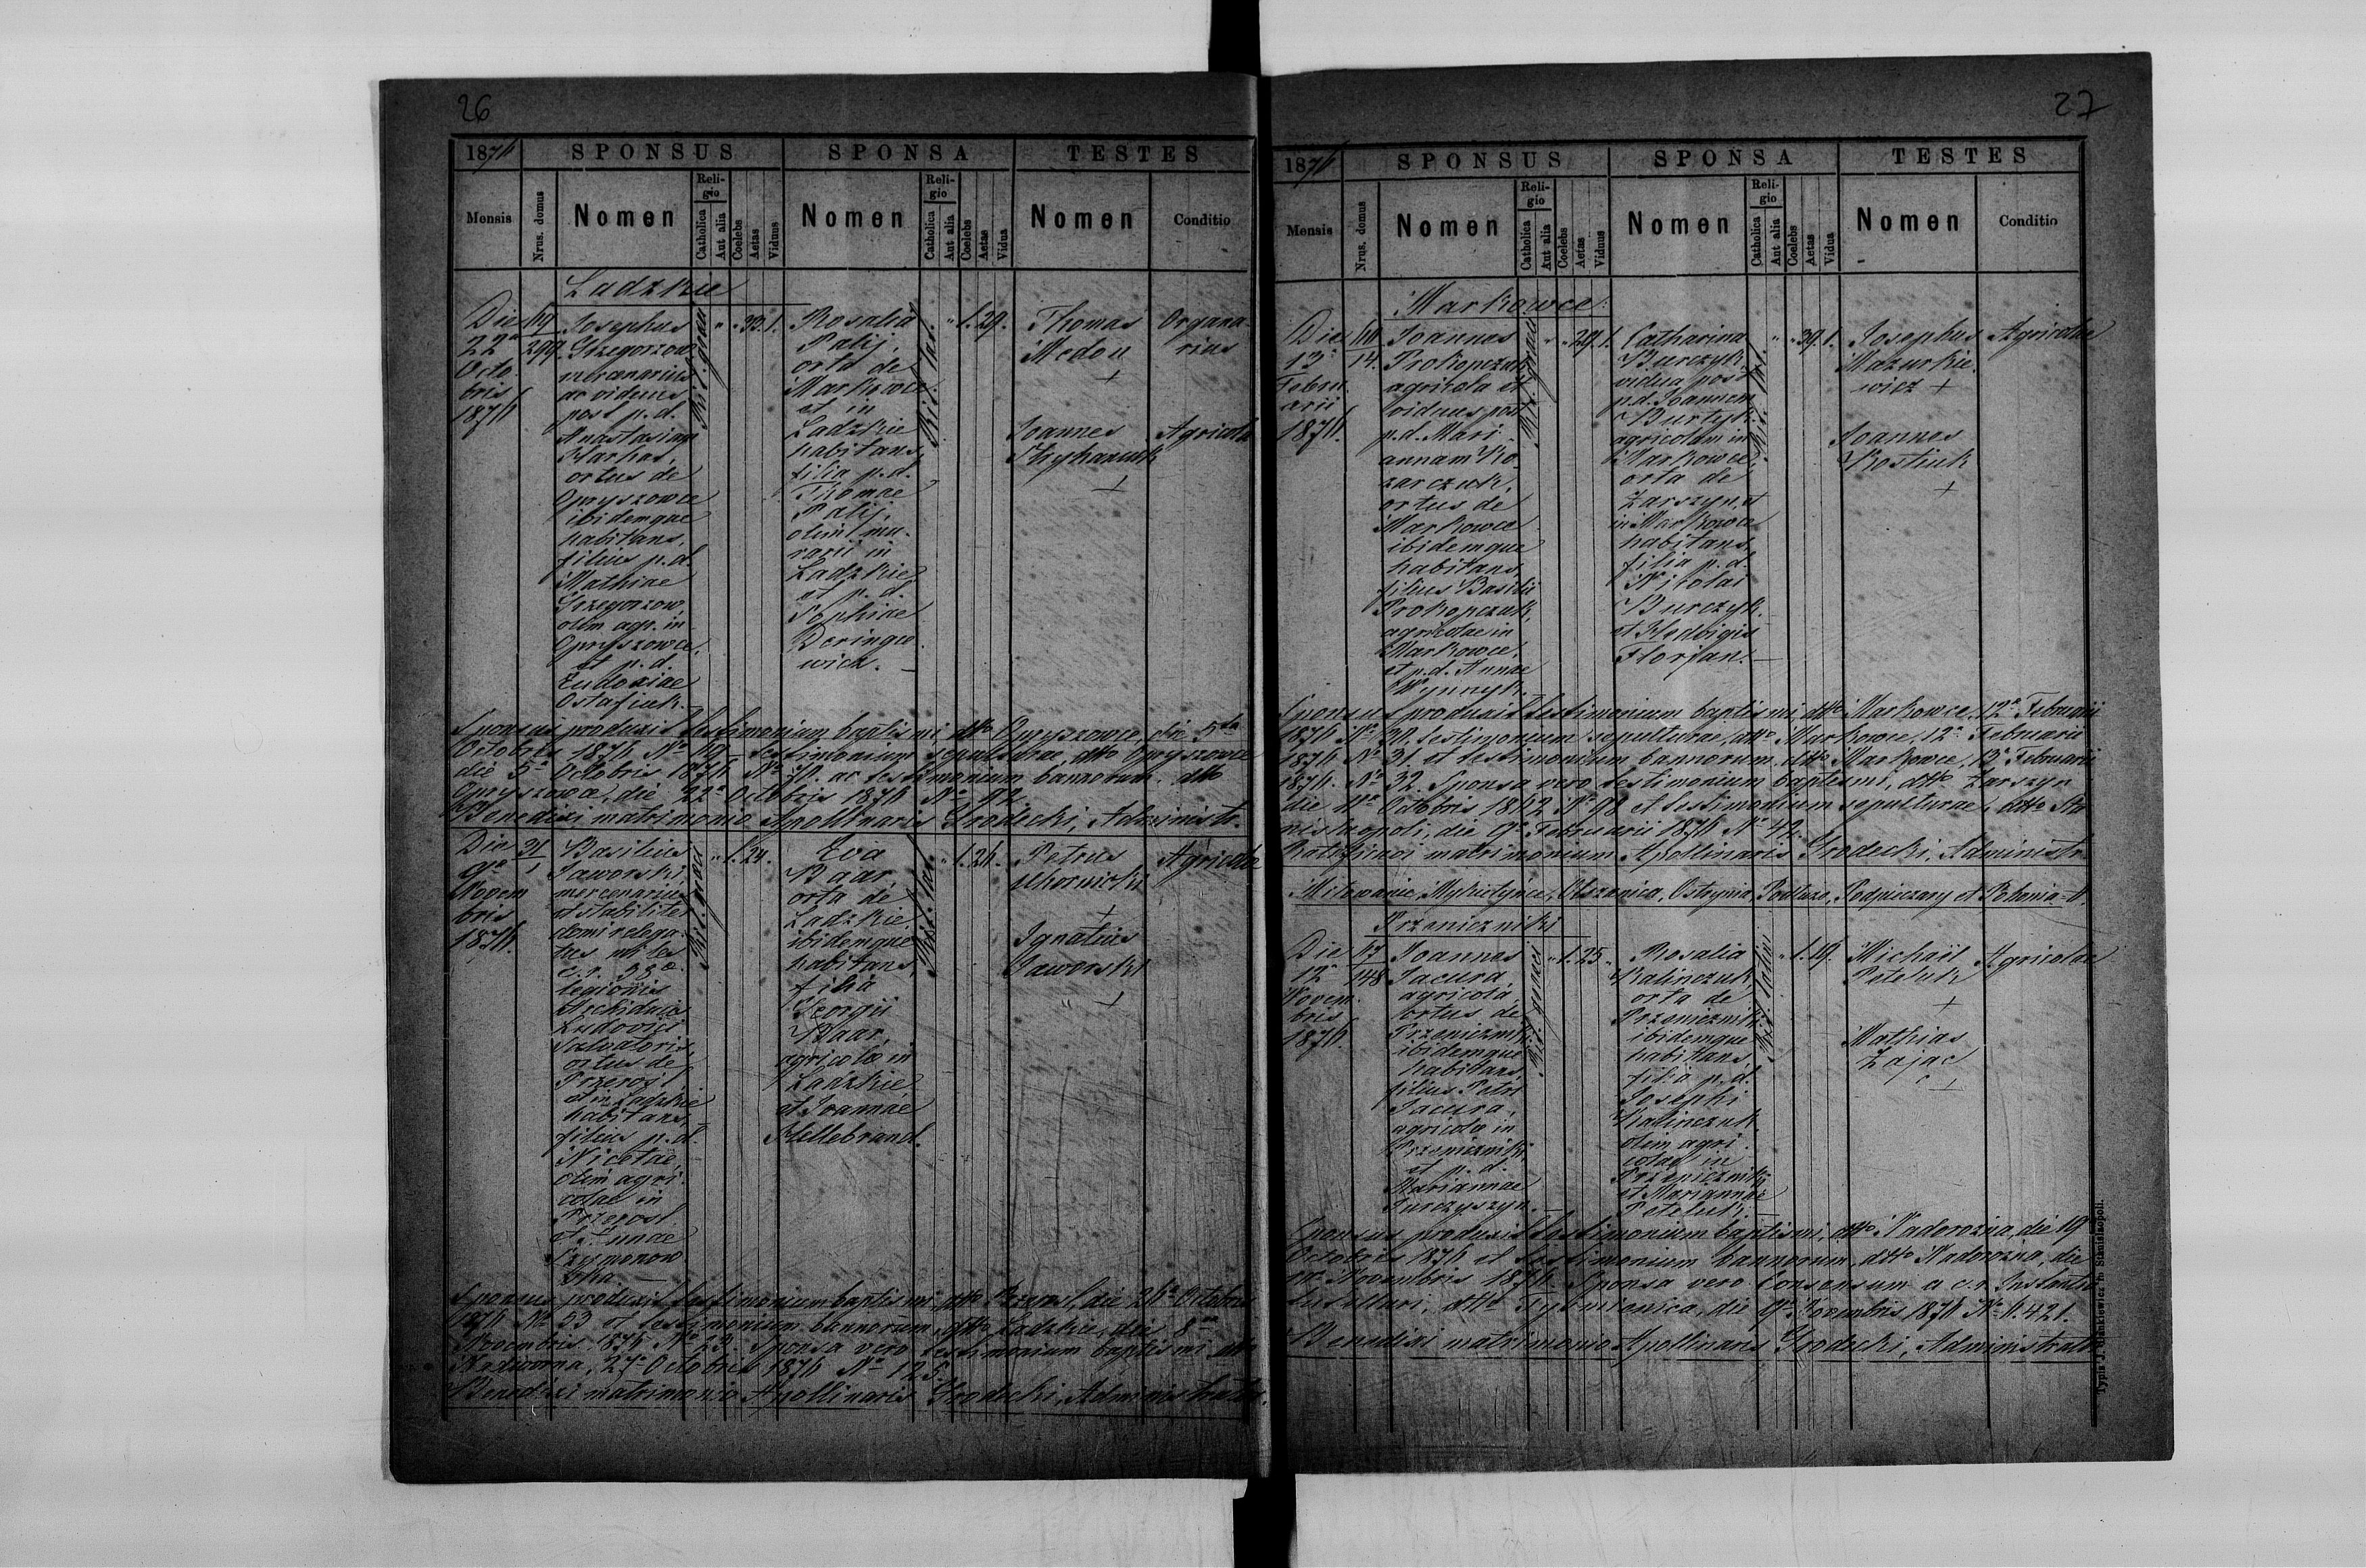 26
1874 SPONSUS SPONSA TESTES
Mensis Nrus. domus Nomen Religio Catholica Aut alia Coelebs Aetas Viduus Nomen Religio Catholica Aut alia Coelebs Aetas Vidua Nomen Conditio
Ladzkie
Die
22a
Octo
bris
1874
299
Josephus
Grzegorzow
mercenarius
ac viduus
post p. d.
Anastasiam
Harpas,
ortus de
Opryszowce
ibidemque
habitans,
filius p. d.
Mathiae
Grzegorzow,
olim agr. in
Opryszowce,
et p. d.
Eudoxiae
Ostafiuk.
Rit. graeci
" " 33. 1.
Rosalia
Palij,
orta de
Markowce
et in
Ladzkie
habitans,
filia p. d.
Thomae
Palij,
olim mu-
rarii in
Ladzkie,
et p. d.
Sophiae
Deringe
wicz. —
Rit. lat.
" 1. 29.
Thomas
Medou
+
Joannes
+
Organa-
rius
Agricola
Sponsus produxit testimonium baptismi, dtto Opryszowce, die 5ta
Octobris 1874 No 69 testimonium sepulturae, dtto Opryszowce
die 5a Octobris 1874 No 70. ac testimonium bannorum, dtto
Opryszowce, die 22a Octobris 1874 No 72.
Benedixi matrimonio Apollinaris Grodecki, Administr.
Die
9a
Novem
bris
1874.
31
1
Basilius
Jaworski,
mercenarius
et stabiliter
domi relega-
tus miles
c. r. 58ae
legionis
Archiducis
Ludovici
Salvatoris,
ortus de
Przerosl
et in Ladzkie
habitans,
filius p. d.
Nicetae,
olim agri-
colae in
Przerosl
et Annae
Szymonow
Rit. graeci
" 1. 24.
Eva
Baar,
orta de
Ladzkie,
ibidemque
habitans,
filia
Georgii
Baar,
agricolae in
Ladzkie
et Joannae
Hellebrand.
Rit. lat.
" 1. 24.
Petrus
+
Ignatius
Jaworski
" +
Agricolae
Sponsus produxit testimonium baptismi, dtto Przerosl, die 24a Octobris
1874 No 53 et testimonium bannorum, dtto Ladzkie, die 8a
Novembris 1874 No 23. Sponsa vero testimonium baptismi dtto
Nadworna, 27a Octobris 1874 No 125.
Benedixi matrimonio Apollinaris Grodecki, Administrator.
27
1874 SPONSUS SPONSA TESTES
Mensis Nrus. domus Nomen Religio Catholica Aut alia Coelebs Aetas Viduus Nomen Religio Catholica Aut alia Coelebs Aetas Vidua Nomen Conditio
Markowce
Die
13a
Febru
arii
1874.
14.
Joannes
Prokopczuk
agricola et
viduus post
p. d. Mari-
annam Ko-
zarczuk,
ortus de
Markowce
ibidemque
habitans,
filius Basilii
Prokopczuk,
agricolae in
Markowce,
et p. d. Annae
Wynnyk.
Rit. graeci
" " 29. 1.
Catharina
Burczyk,
vidua post
p. d. Joannem
agricolam in
Markowce,
orta de
Zarszyn et
in Markowce
habitans,
filia p. d.
Nikolai
Burczyk
et Hedvigis
Florjan. —
Rit. lat.
" " 39. 1.
Josephus
Mazurkie
wicz +
Joannes
Kostiuk
+
Agricolae
Sponsus produxit testimonium baptismi, dtto Markowce, 12a Februarii
1874 No 30. testimonium sepulturae, dtto Markowce, 12a Februarii
1874 No 31. et testimonium bannorum, dtto Markowce, 13a Februarii
1874. No 32. Sponsa vero testimonium baptismi, dtto Zarszyn
die 11a Octobris 1862 No 98 et testimonium sepulturae, dtto Sta
nislaopoli, die 9a Februarii 1874 No 42.
matrimonium Apollinaris Grodecki, Administr.
Milowanie, Mykietynce, Olszanica, Ostrynia, Podluze, Podpieczary et
Przeniczniki
Die
12a
Novem-
bris
1874.
148
Joannes
Jacura
agricola,
ortus de
Przeniczniki,
ibidemque
habitans,
filius Petri
Jacura,
agricolae in
Przeniczniki,
et p. d.
Mariannae
Turczyszyn. —
Rit. graeci
" 1. 25. "
Rosalia
Kalinczuk
orta de
Przeniczniki,
ibidemque
habitans,
filia p. d.
Josephi
Kalinczuk
olim agri-
colae in
Przeniczniki
et Mariannae
Peteluk. —
Rit. latini
" 1. 19.
Michaël
Peteluk
+
Mathias
Zajac
+
Agricolae
Sponsus produxit testimonium baptismi, dtto Nadorozna, die 19a
Octobris 1874 et testimonium bannorum, dtto Nadorozna, die
Novembris 1874. Sponsa vero Consensum a c. r. Instantia
tutellari, dtto Tysmienica, die 9a Novembris 1874 No 4421.
Benedixi matrimonio Apollinaris Grodecki, Administrator
Typis J. Dankiewicz in Stanislaopoli.